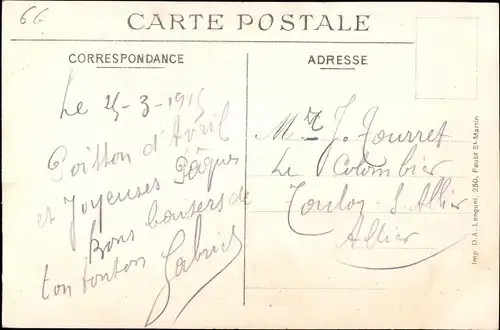 66
CARTE POSTALE
CORRESPONDANCE
ADRESSE
Le 25-3-1915
Poisson d'Avril
et Joyeuses Pâques
Bons baisers de
ton tonton Gabriel
Mr J. Tourret
Le Colombier
Toulon S. Allier
Allier
Imp. D.A. Longuet, 250, Faubg St-Martin